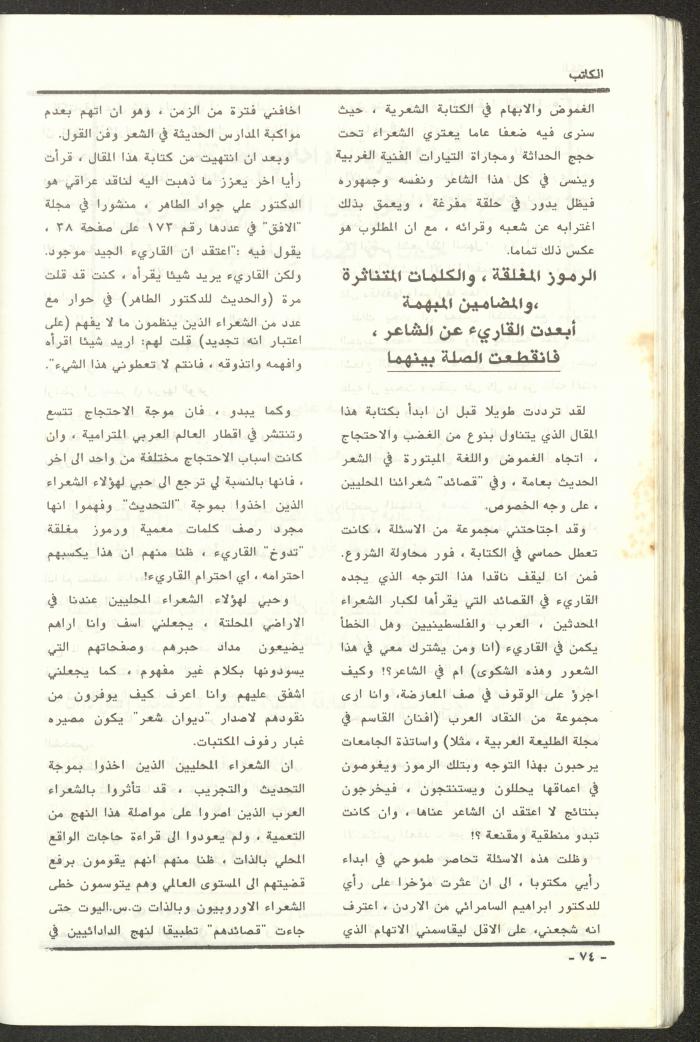 الكاتب
الغموض والابهام في الكتابة الشعرية ، حيث
سنرى فيه ضعفا عاما يعتري الشعراء تحت
حجج الحداثة ومجاراة التيارات الفنية الغربية
وينسى في كل هذا الشاعر ونفسه وجمهوره
فيظل يدور في حلقة مفرغة ، ويعمق بذلك
اغترابه عن شعبه وقرائه ، مع ان المطلوب هو
عكس ذلك تماما.
الرموز المغلقة ، والكلمات المتناثرة
،والمضامين المبهمة
أبعدت القاريء عن الشاعر ،
فانقطعت الصلة بينهما
لقد ترددت طويلا قبل ان ابدأ بكتابة هذا
المقال الذي يتناول بنوع من الغضب والاحتجاج
، اتجاه الغموض واللغة المبتورة في الشعر
الحديث بعامة ، وفي "قصائد" شعرائنا المحليين
، على وجه الخصوص.
وقد اجتاحتني مجموعة من الاسئلة ، كانت
تعطل حماسي في الكتابة ، فور محاولة الشروع.
فمن انا ليقف ناقدا هذا التوجه الذي يجده
القاريء في القصائد التي يقرأها لكبار الشعراء
المحدثين ، العرب والفلسطينيين وهل الخطأ
يكمن في القاريء (انا ومن يشترك معي في هذا
الشعور وهذه الشكوى) ام في الشاعر؟! وكيف
اجرؤ على الوقوف في صف المعارضة، وانا ارى
مجموعة من النقاد العرب (افنان القاسم في
مجلة الطليعة العربية ، مثلا) واساتذة الجامعات
يرحبون بهذا التوجه وبتلك الرموز ويغوصون
في اعماقها يحللون ويستنتجون ، فيخرجون
بنتائج لا اعتقد ان الشاعر عناها ، وان كانت
تبدو منطقية ومقنعة ؟!
وظلت هذه الاسئلة تحاصر طموحي في ابداء
رأيي مكتوبا ، الى ان عثرت مؤخرا على رأي
للدكتور ابراهيم السامرائي من الاردن ، اعترف
انه شجعني، على الاقل ليقاسمني الاتهام الذي
اخافني فترة من الزمن ، وهو ان اتهم بعدم
مواكبة المدارس الحديثة في الشعر وفن القول.
وبعد ان انتهيت من كتابة هذا المقال ، قرأت
رأيا اخر يعزز ما ذهبت اليه لناقد عراقي هو
الدكتور علي جواد الطاهر ، منشورا في مجلة
"الافق" في عددها رقم ١٧٣ على صفحة ٣٨ ،
يقول فيه :"اعتقد ان القاريء الجيد موجود.
ولكن القاريء يريد شيئا يقرأه ، كنت قد قلت
مرة (والحديث للدكتور الطاهر) في حوار مع
عدد من الشعراء الذين ينظمون ما لا يفهم (على
اعتبار انه تجديد) قلت لهم: اريد شيئا اقرأه
وافهمه واتذوقه ، فانتم لا تعطوني هذا الشيء".
وكما يبدو ، فان موجة الاحتجاج تتسع
وتنتشر في اقطار العالم العربي المترامية ، وان
كانت اسباب الاحتجاج مختلفة من واحد الى اخر
، فانها بالنسبة لي ترجع الى حبي لهؤلاء الشعراء
الذين اخذوا بموجة "التحديث" وفهموا انها
مجرد رصف كلمات معمية ورموز مغلقة
"تدوخ" القاريء ، ظنا منهم ان هذا يكسبهم
احترامه ، اي احترام القاريء!
وحبي لهؤلاء الشعراء المحليين عندنا في
الاراضي المحلتة ، يجعلني اسف وانا اراهم
يضيعون مداد حبرهم وصفحاتهم التي
يسودونها بكلام غير مفهوم ، كما يجعلني
اشفق عليهم وانا اعرف كيف يوفرون من
نقودهم لاصدار "ديوان شعر" يكون مصيره
غبار رفوف المكتبات.
ان الشعراء المحليين الذين اخذوا بموجة
التحديث والتجريب ، قد تأثروا بالشعراء
العرب الذين اصروا على مواصلة هذا النهج من
التعمية ، ولم يعودوا الى قراءة حاجات الواقع
المحلي بالذات ، ظنا منهم انهم يقومون برفع
قضيتهم الى المستوى العالمي وهم يتوسمون خطى
الشعراء الاوروبيون وبالذات ت.س.اليوت حتى
جاءت "قصائدهم" تطبيقا لنهج الدادائيين في
- ٧٤ -